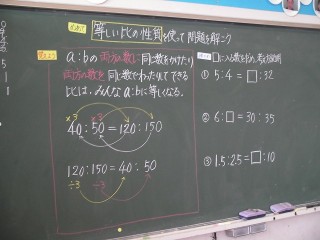 等しい比の性質を使って問題を解こう
a:bの両方の数に同じ数をかけたり
両方の数を同じ数でわったりしてできる
比は、みんなa:bに等しくなる。
×3 ×3
40:50=120:150
120:150=40:50
÷3 ÷3
□に入る数を求め、考えを説明
① 5:4=□:32
② 6:□=30:35
③ 1.5:2.5=□:10